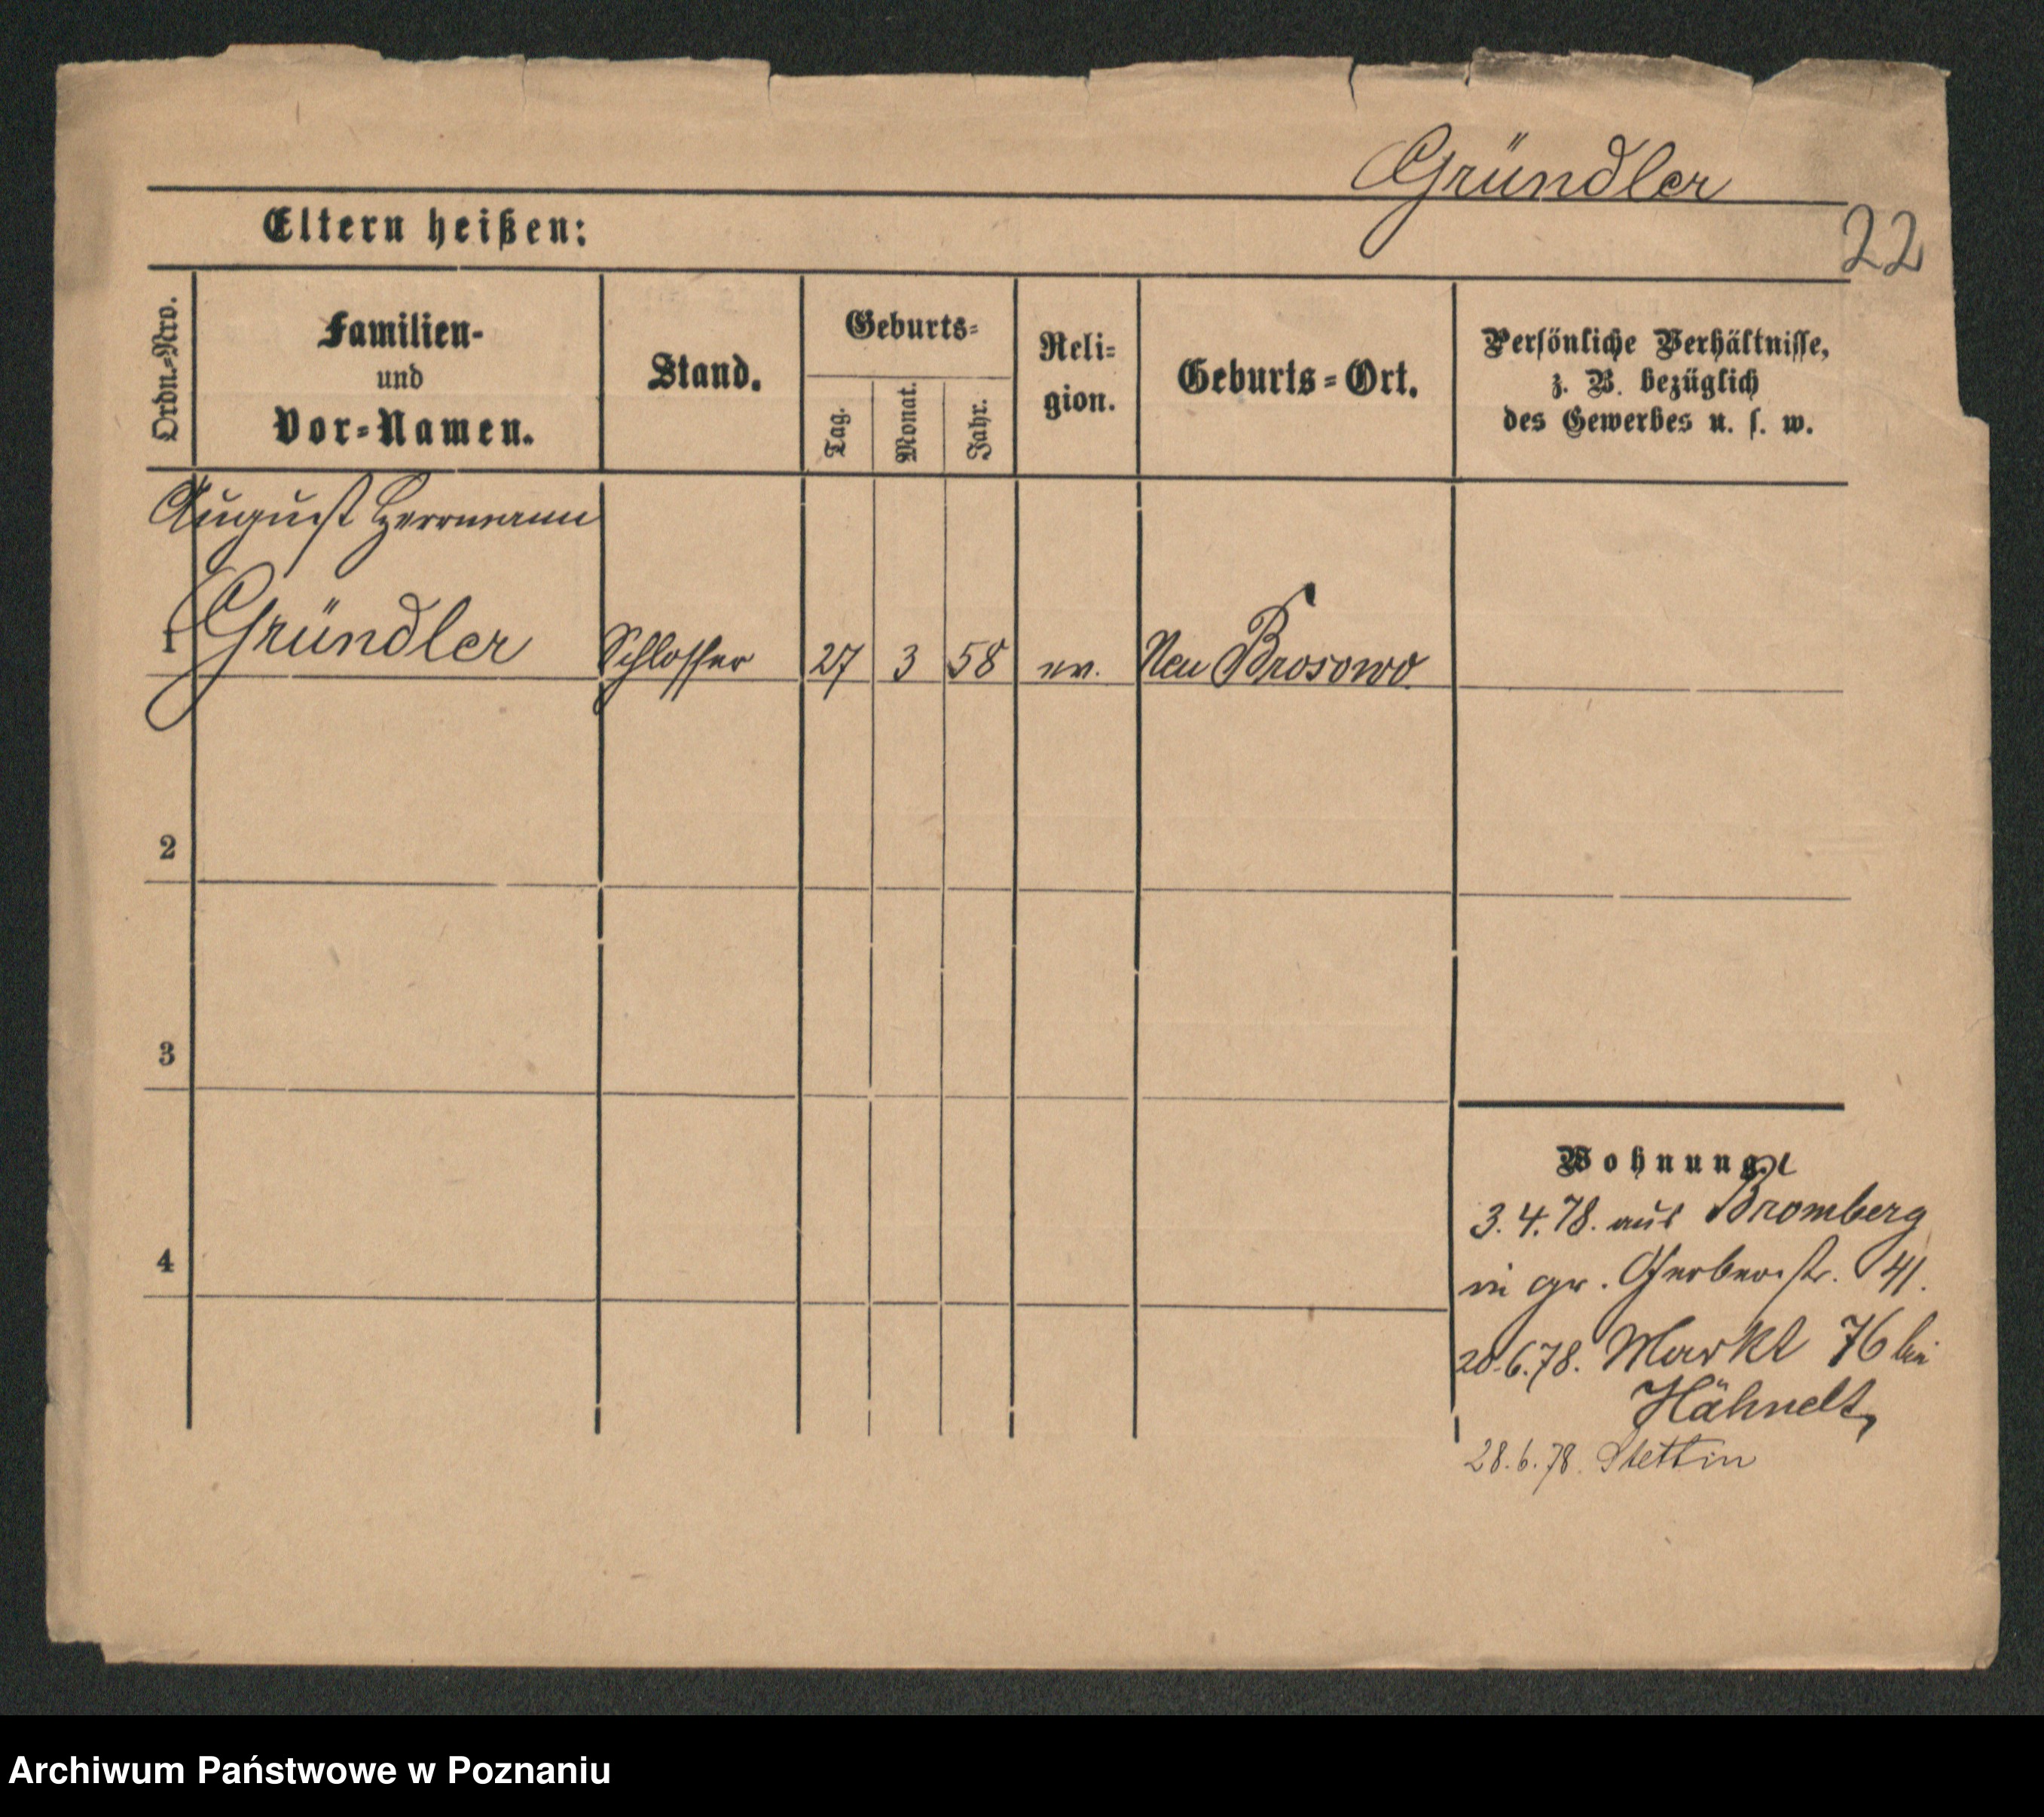 Gründler
22
Eltern heißen:
Ordn.-Nro.
Familien-
und
Vor-Namen.
Stand.
Geburts-
Tag.
Monat.
Jahr.
Reli-
gion.
Geburts-Ort.
Persönliche Verhältnisse,
z. B. bezüglich
des Gewerbes u. s. w.
August Herrmann
1 Gründler Schlosser 27 3 58 ev. Neu Brosowo
2
3
4
Wohnung.
3.4.78. aus Bromberg
in gr. Gerberstr. 41.
20.6.78. Markt 76 bei
Hähnelt,
28.6.78. Stettin
Archiwum Państwowe w Poznaniu